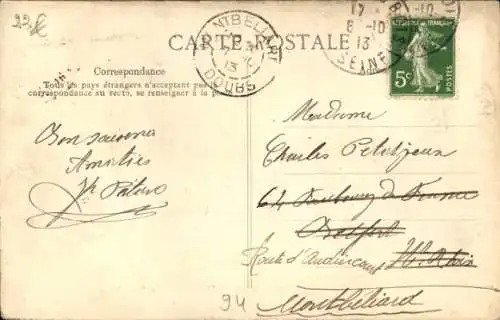 22 €
CARTE POSTALE
MONTBELIARD
DOUBS
13
17
8 -10
13
SEINE
-10
POSTES
5c
Correspondance
Tous les pays étrangers n'acceptant pas
correspondance au recto, se renseigner à la p
Bon souvenir
Amitiés
Madame
Charles Petitjean
64 Faubourg de France
Belfort
Route d'Audincourt Ht Rhin
Montbéliard
94